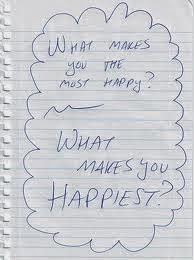 WHAT MAKES
YOU THE
MOST HAPPY?
WHAT
MAKES YOU
HAPPIEST?